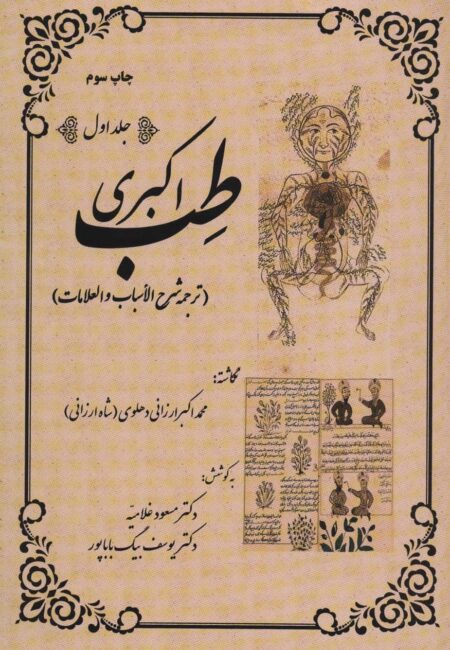 چاپ سوم
جلد اول
طب اکبری
(ترجمه شرح الأسباب والعلامات)
نگاشته:
محمد اکبر ارزانی دهلوی (شاه ارزانی)
به کوشش:
دکتر مسعود غلامیه
دکتر یوسف بیگ باباپور